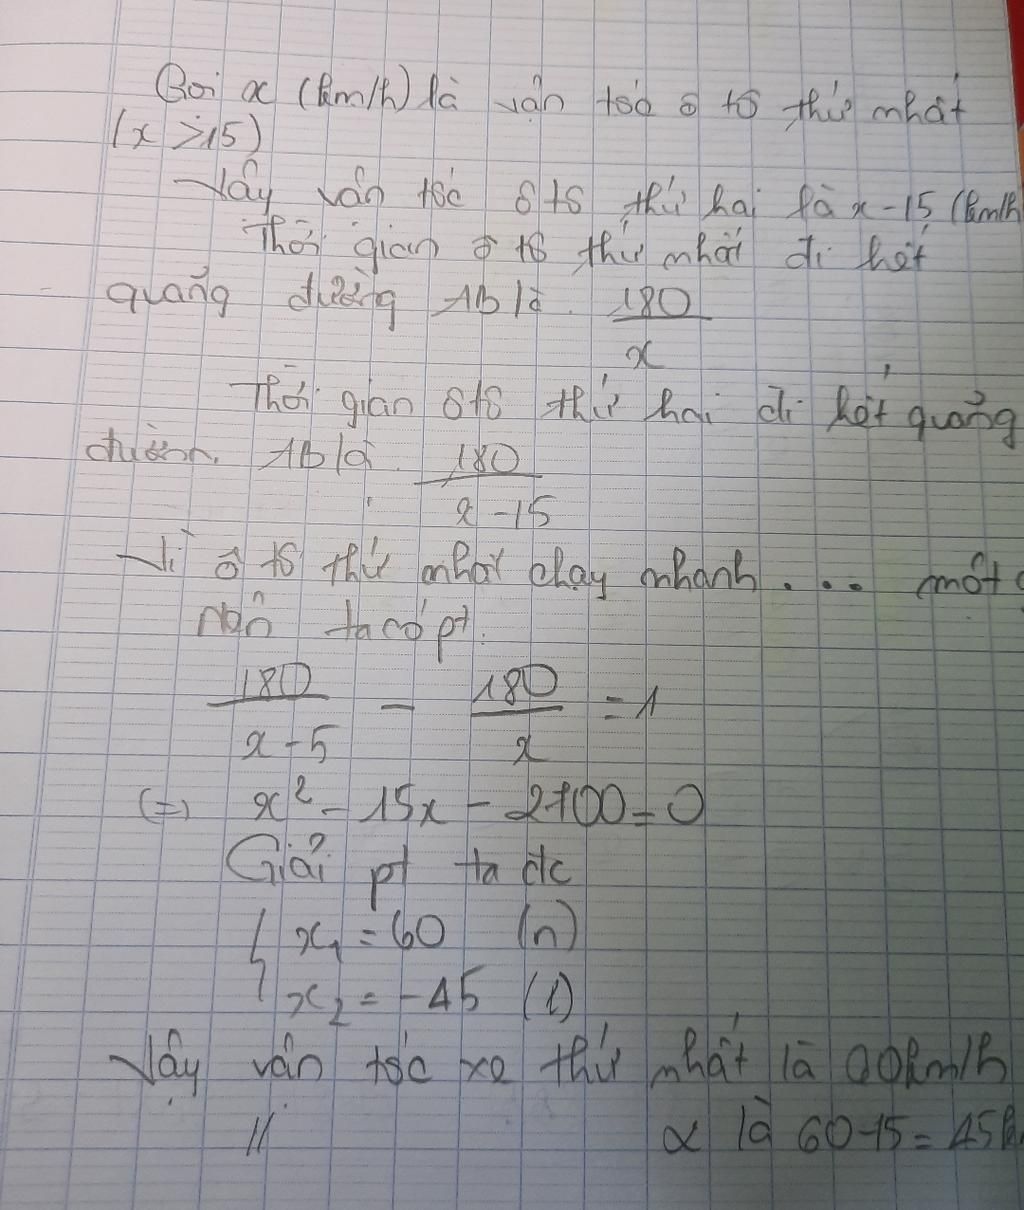 Gọi x (km/h) là vận tốc ô tô thứ nhất
(x > 15)
Vậy vận tốc ô tô thứ hai là x - 15 (km/h
Thời gian ô tô thứ nhất đi hết
quảng đường AB là 180/x
Thời gian ô tô thứ hai đi hết quảng
đường AB là 180/x - 15
Vì ô tô thứ nhất chạy nhanh . . . một
Nên ta có pt
180/x - 5 - 180/x = 1
(=) x² - 15x - 2700 = 0
Giải pt ta đc
{ x₁ = 60 (n)
x₂ = -45 (l)
Vậy vận tốc xe thứ nhất là 60km/h
// là 60-15 = 45k